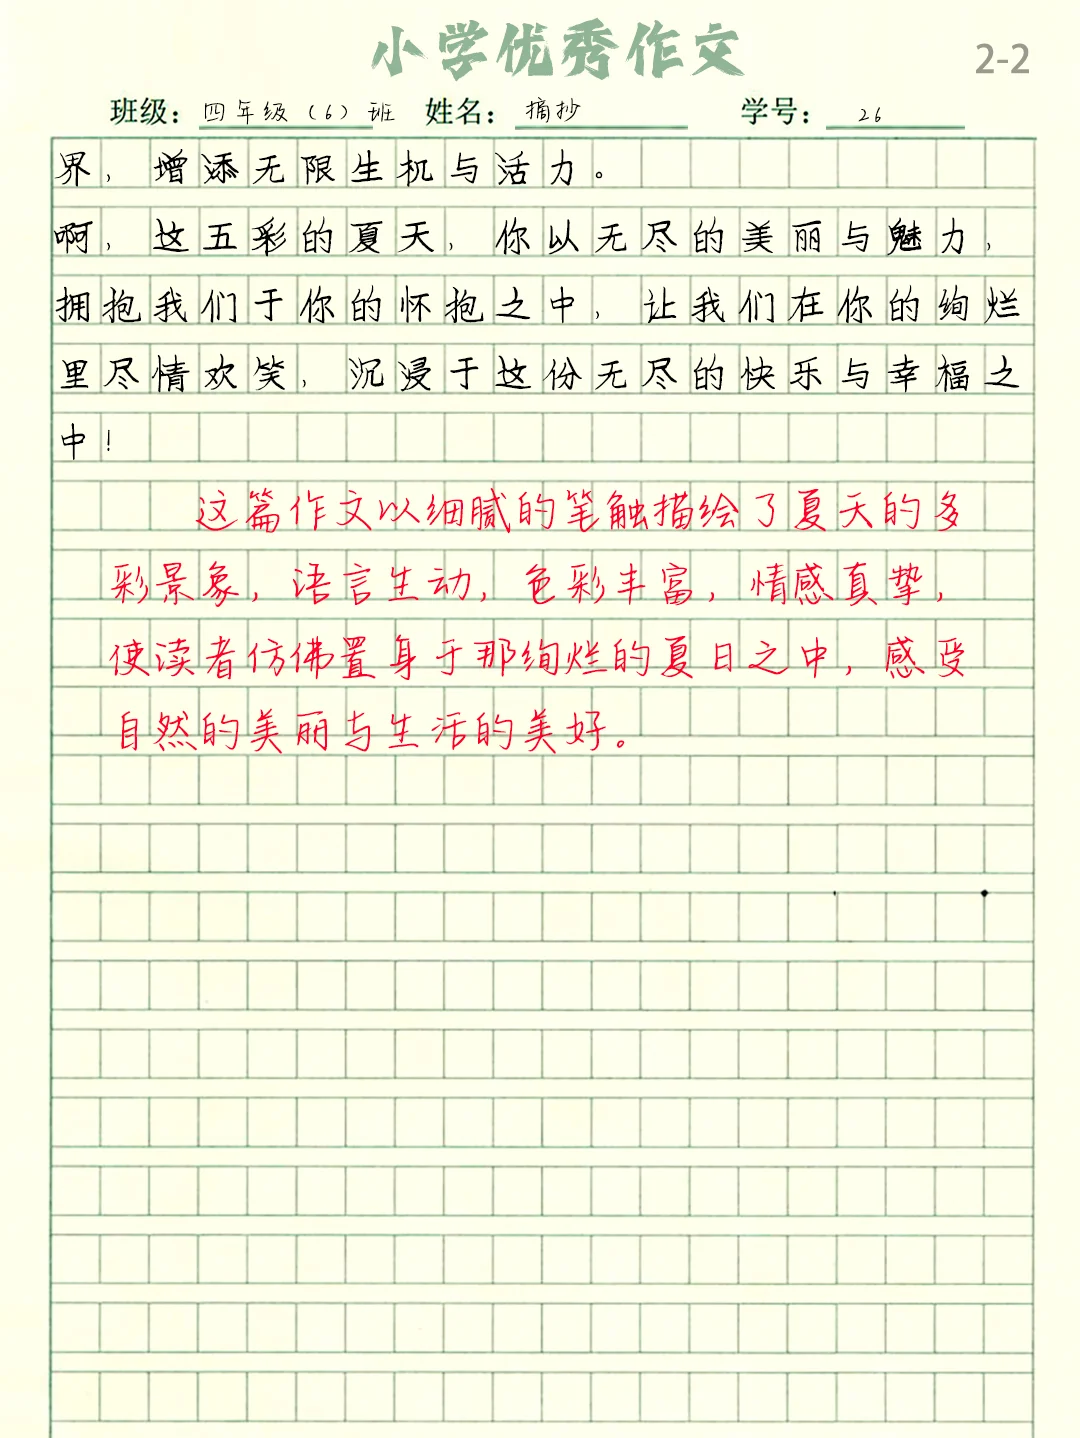 小学优秀作文
2-2
班级：四年级（6）班 姓名：摘抄 学号：26
界，增添无限生机与活力。
啊，这五彩的夏天，你以无尽的美丽与魅力，
拥抱我们于你的怀抱之中，让我们在你的绚烂
里尽情欢笑，沉浸于这份无尽的快乐与幸福之
中！
这篇作文以细腻的笔触描绘了夏天的多
彩景象，语言生动，色彩丰富，情感真挚，
使读者仿佛置身于那绚烂的夏日之中，感受
自然的美丽与生活的美好。